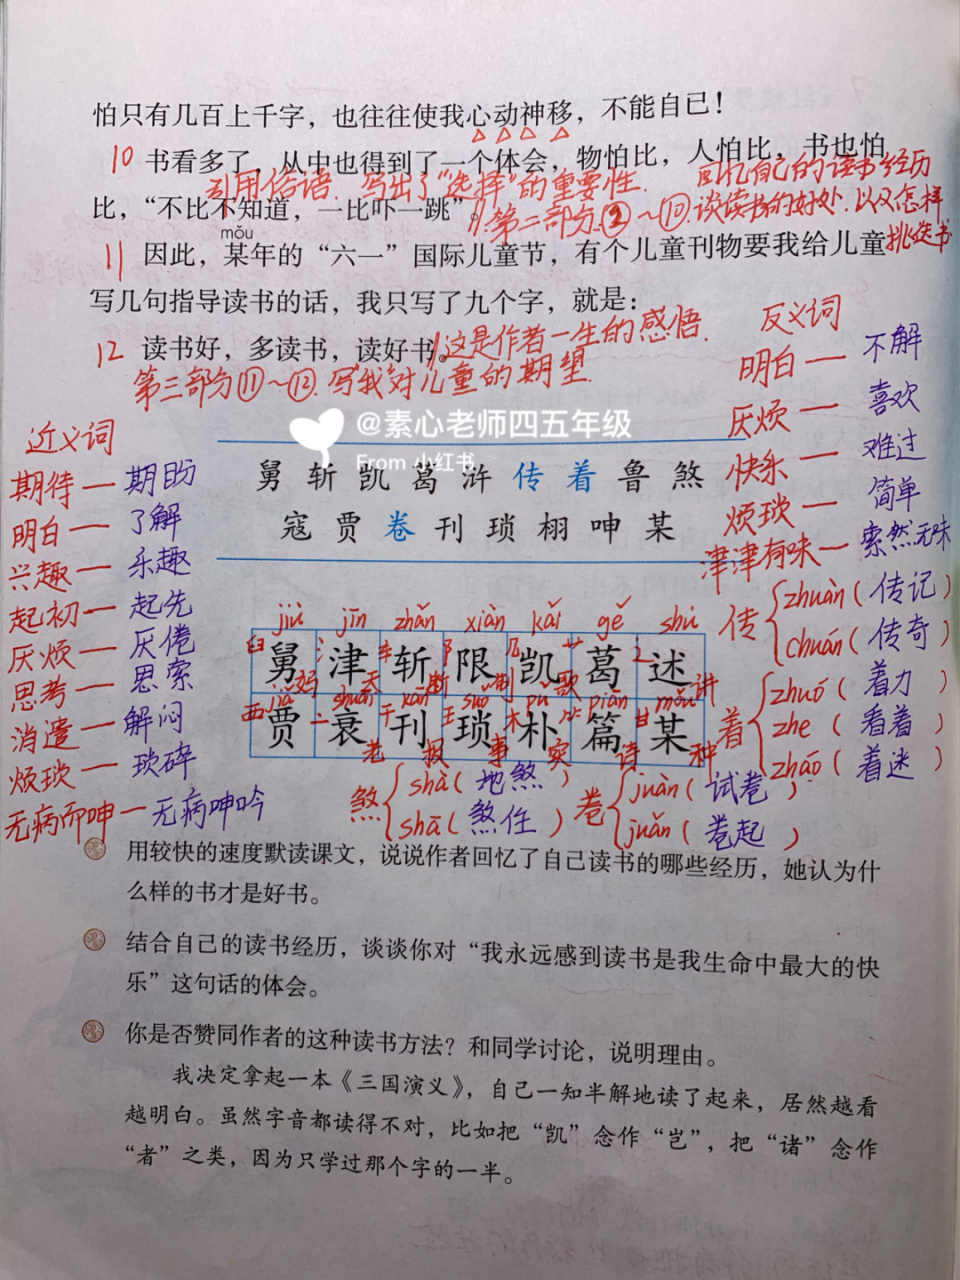 怕只有几百上千字，也往往使我心动神移，不能自已！
10 书看多了，从中也得到了一个体会，物怕比，人怕比，书也怕
引用俗语，写出了"选择"的重要性. 回忆自己的读书经历
比，“不比不知道，一比吓一跳”。
第二部分②～⑩.谈读书的好处.以及怎样
挑选书
mǒu
11 因此，某年的“六一”国际儿童节，有个儿童刊物要我给儿童
写几句指导读书的话，我只写了九个字，就是：
12 读书好，多读书，读好书。
这是作者一生的感悟.
第三部分⑪～⑫.写"我"对儿童的期望.
反义词
明白—不解
厌烦—喜欢
快乐—难过
烦琐—简单
津津有味—索然无味
@素心老师四五年级
From 小红书
近义词
期待—期盼
明白—了解
兴趣—乐趣
起初—起先
厌烦—厌倦
思考—思索
消遣—解闷
烦琐—琐碎
无病而呻—无病呻吟
舅 斩 凯 葛 浒 传 着 鲁 煞
寇 贾 卷 刊 琐 栩 呻 某
jiù jīn zhǎn xiàn kǎi gě shù
臼 氵 车 阝 几 艹 辶
舅 津 斩 限 凯 葛 述
妈 天 断 制 歌 讲
jiǎ shuāi kān suǒ pǔ piān mǒu
西 亠 干 王 木 竹 甘
贾 衰 刊 琐 朴 篇 某
老 报 事 实 诗 种
传 zhuàn（传记）
chuán（传奇）
着 zhuó（着力）
zhe（看着）
zháo（着迷）
煞 shà（地煞）
shā（煞住）
卷 juàn（试卷）
juǎn（卷起）
用较快的速度默读课文，说说作者回忆了自己读书的哪些经历，她认为什
么样的书才是好书。
结合自己的读书经历，谈谈你对“我永远感到读书是我生命中最大的快
乐”这句话的体会。
你是否赞同作者的这种读书方法？和同学讨论，说明理由。
我决定拿起一本《三国演义》，自己一知半解地读了起来，居然越看
越明白。虽然字音都读得不对，比如把“凯”念作“岂”，把“诸”念作
“者”之类，因为只学过那个字的一半。